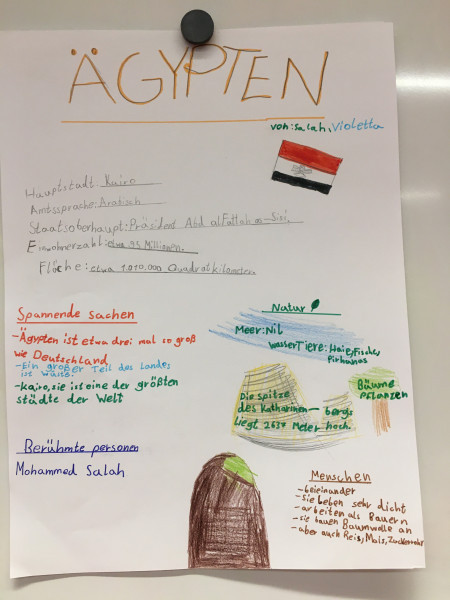 ÄGYPTEN
von: Salah, Violetta
Hauptstadt: Kairo
Amtssprache: Arabisch
Staatsoberhaupt: Präsident Abd alFattah as-Sisi
Einwohnerzahl: etwa 94 Millionen
Fläche: etwa 1.010.000 Quadratkilometer
Spannende sachen
-Ägypten ist etwa drei mal so groß
wie Deutschland
-Ein großer Teil des Landes
ist Wüste.
-Kairo, sie ist eine der größten
städte der Welt
Berühmte personen
Mohammed Salah
Natur
Meer: Nil
wasserTiere: Haie, Fische,
Pirhanas
Die spitze
des Katharinen-bergs
liegt 2637 Meter hoch.
Bäume
pflanzen
Menschen
-beieinander
-sie leben sehr dicht
-arbeiten als Bauern
-sie bauen Baumwolle an
-aber auch Reis, Mais, Zuckerrohr